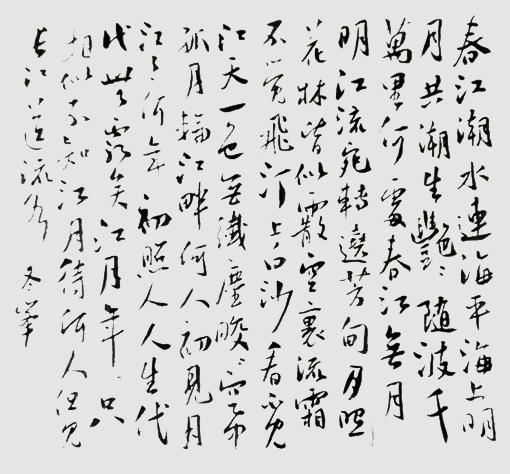 春江潮水連海平海上明
月共潮生艷〻隨波千
萬里何處春江無月
明江流宛轉遶芳甸月照
花林皆似霰空裏流霜
不覺飛汀上白沙看不見
江天一色無纖塵皎〻空中
孤月輪江畔何人初見月
江月何年初照人人生代
代無窮矣江月年〻只
相似不知江月待何人但見
長江送流水
冬峯